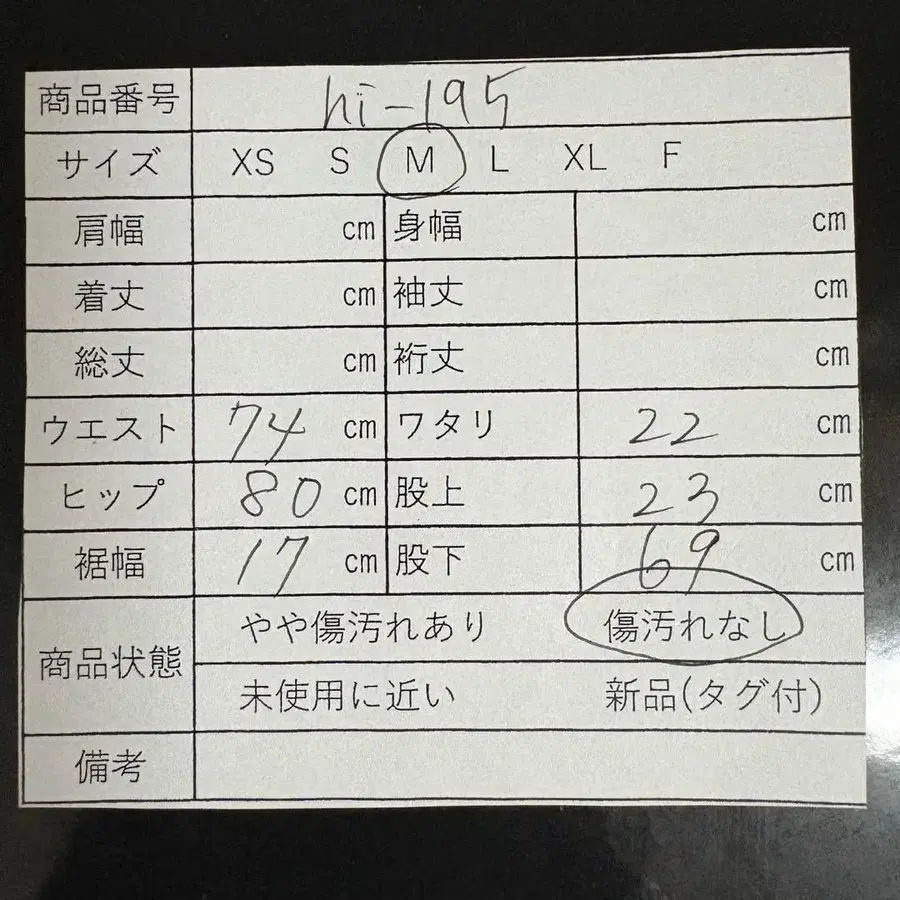 商品番号 hi-195
サイズ XS S M L XL F
肩幅 cm 身幅 cm
着丈 cm 袖丈 cm
総丈 cm 裄丈 cm
ウエスト 74 cm ワタリ 22 cm
ヒップ 80 cm 股上 23 cm
裾幅 17 cm 股下 69 cm
商品状態 やや傷汚れあり 傷汚れなし
未使用に近い 新品(タグ付)
備考